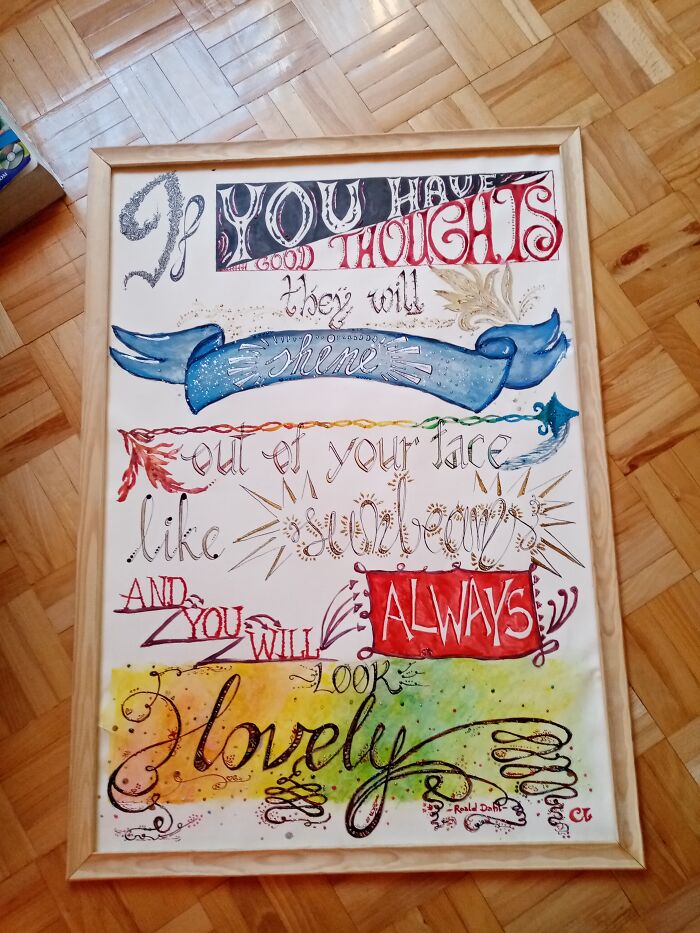 If YOU HAVE
GOOD THOUGHTS
they will
shine
out of your face
like sunbeams
AND YOU WILL ALWAYS
LOOK
lovely
-Roald Dahl-